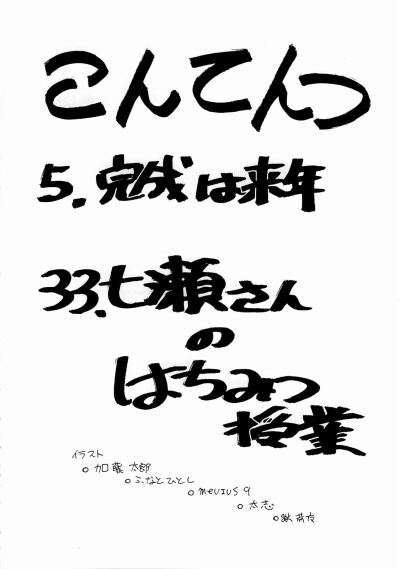 こんてんつ
5.完成は来年
33.七瀬さん
の
はちみつ
授業
イラスト
○加葉太郎
○ふなとひとし
○meuius9
○太志